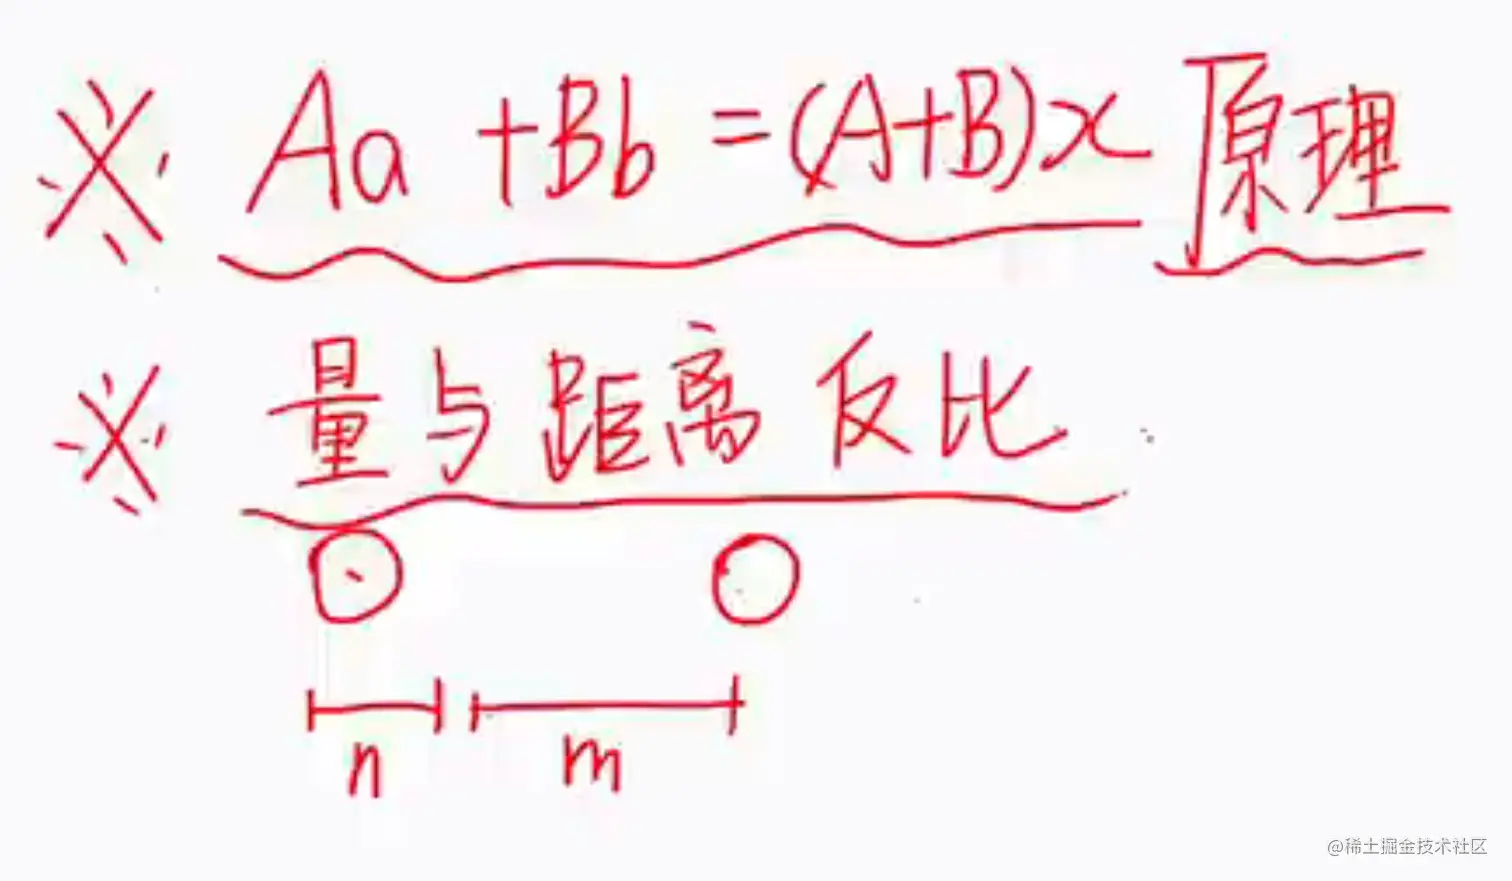 ※ Aa+Bb=(A+B)x 原理
※ 量与距离反比
n m
@稀土掘金技术社区